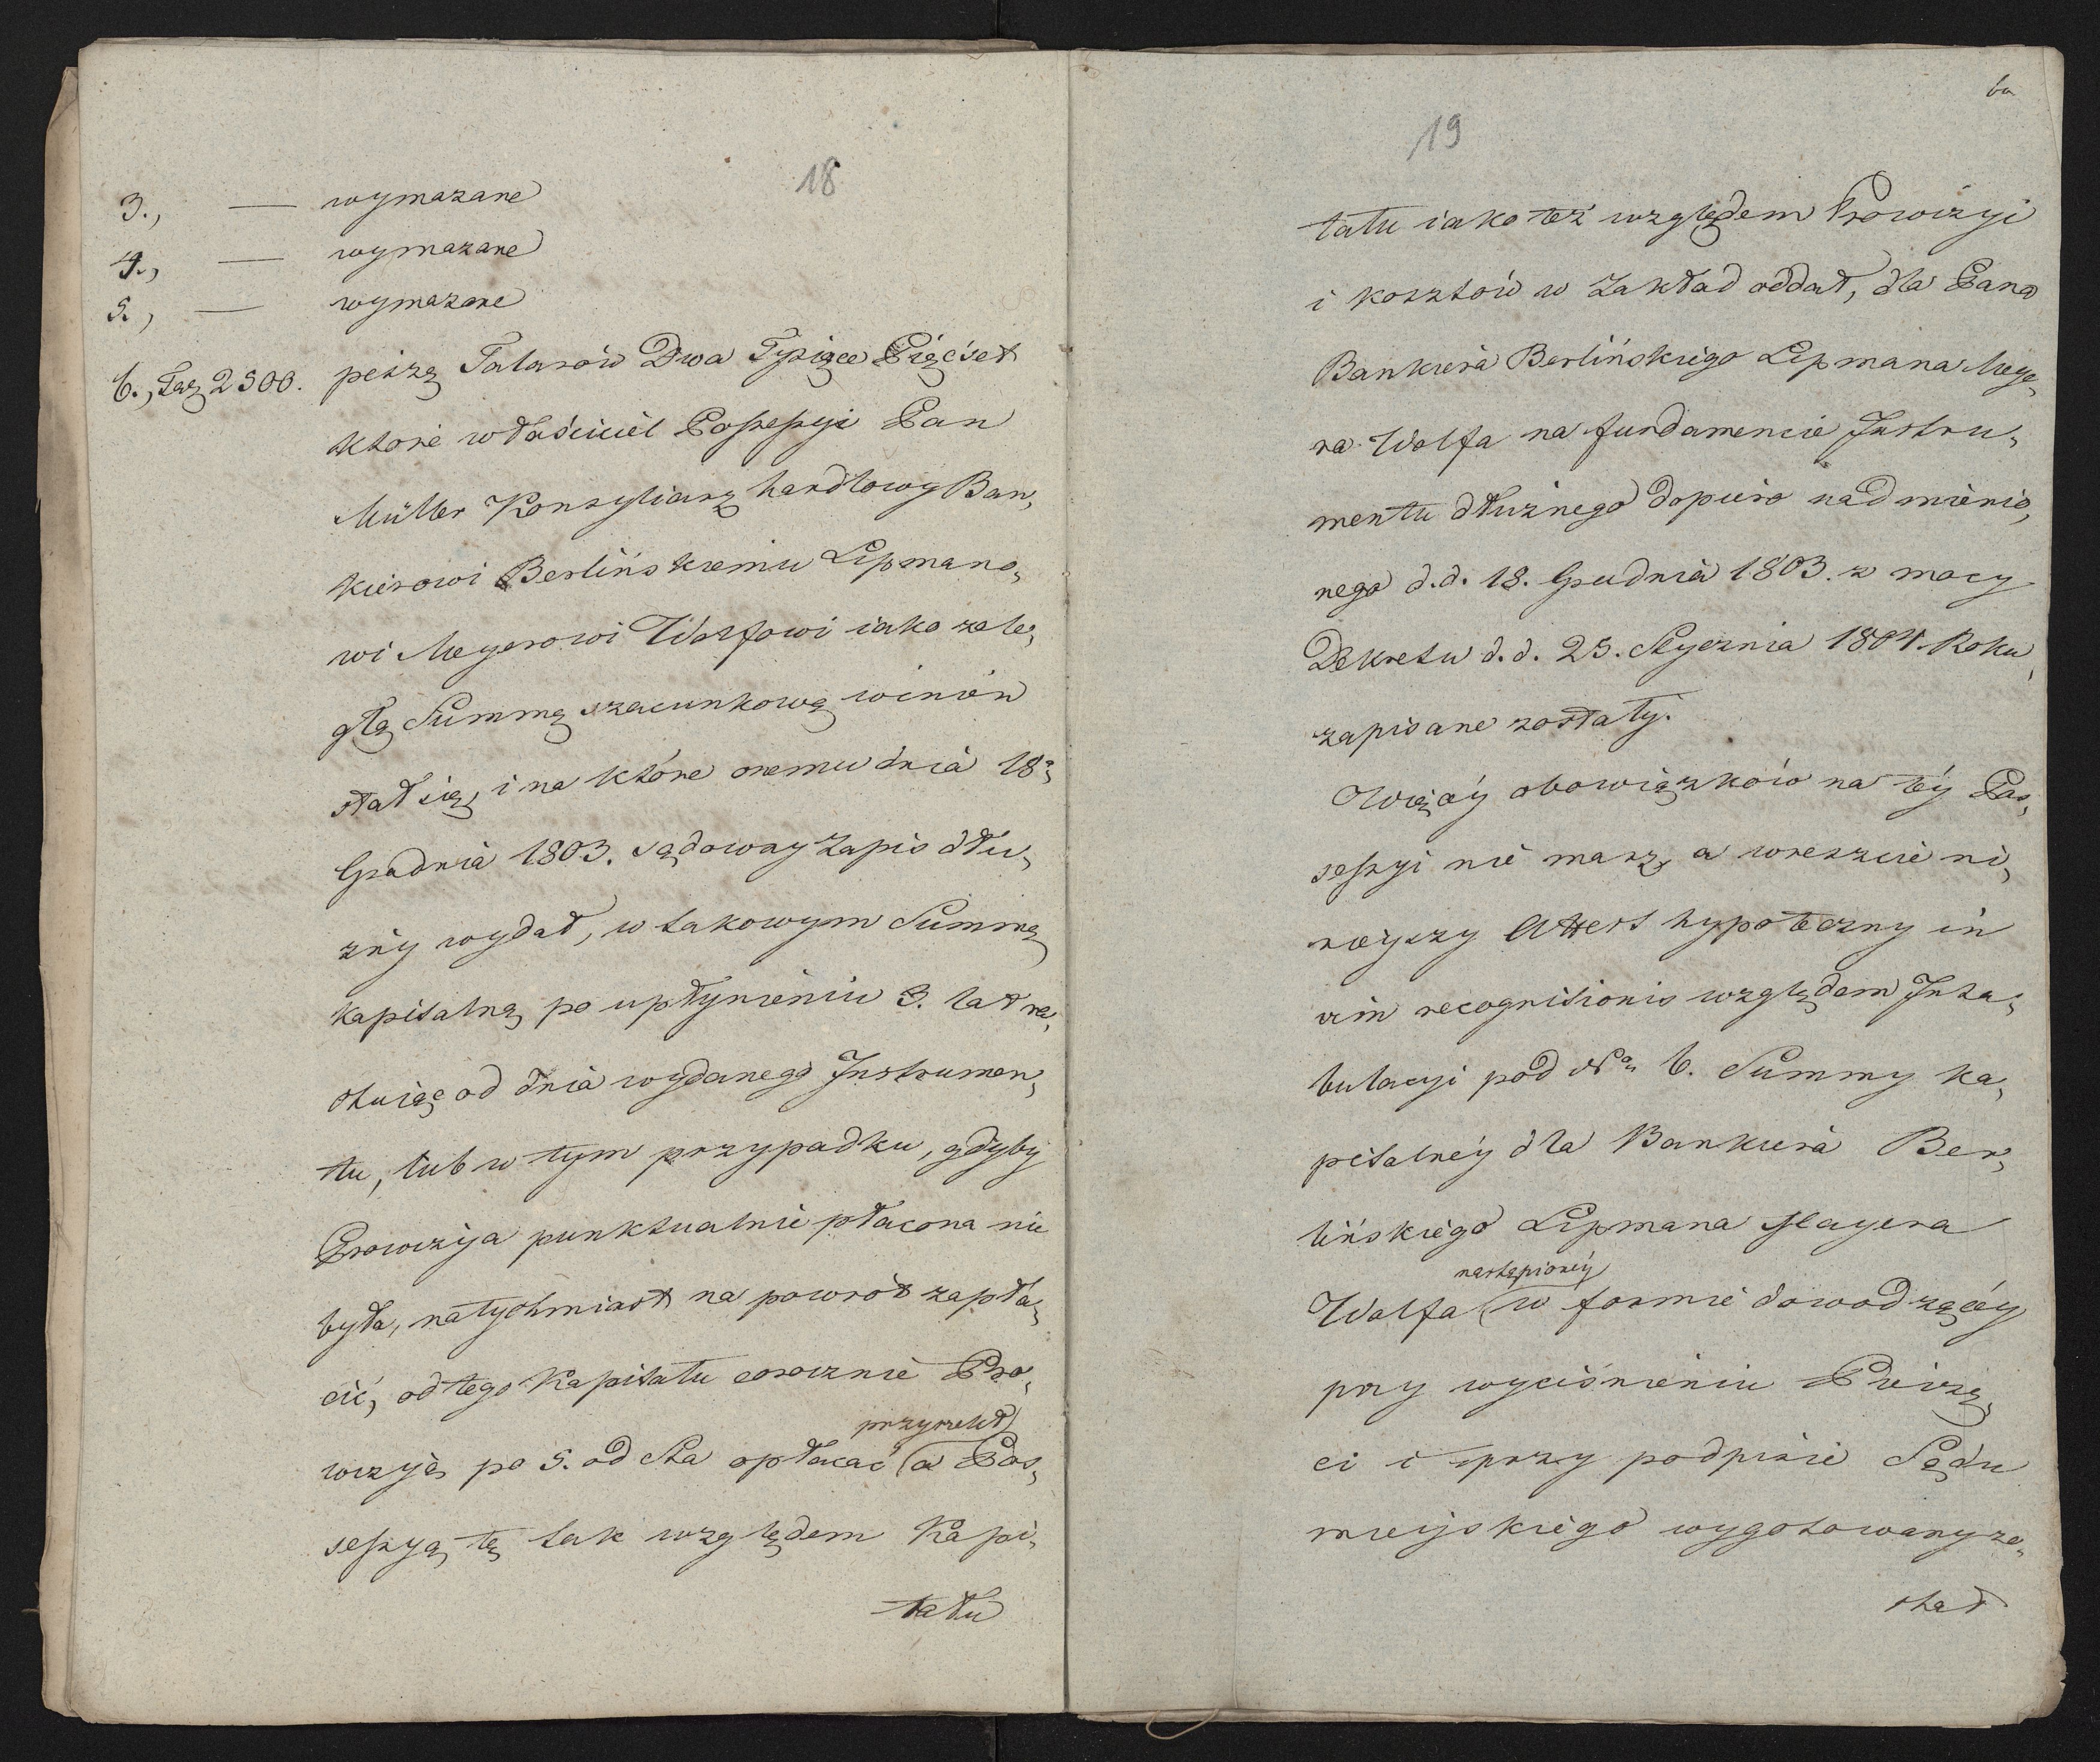 18
3., — wymazane
4., — wymazane
5., — wymazane
6., Tag 2500. piszę Talarów Dwa Tysiące Pięćset
które właściciel Possessyi Pan
Müller Konsyliarz handlowy Ban,
kierowi Berlińskiemu Lipmano,
wi Meyerowi Wolfowi iako zale,
głą Summę szacunkową winien
stał się, i na które onemu dnia 18.
Grudnia 1803. sądowny Zapis dłu,
żny wydał, w takowym Summę
kapitalną po upłynieniu 3. lat ra,
chuiąc od dnia wydanego Instrumen,
tu, lub w tym przypadku, gdyby
Prowizya punktualnie płacona nie
była, natychmiast na powrót zapła,
cić, od tego Kapitału corocznie Pro,
przyrzekł
wizyą po 5. od Sta opłacać (a Pos,
sessyą tę tak względem Kapi,
tału
6a
19
tału iako też względem Prowizyi
i kosztów w Zakład oddał, dla Pana
Bankiera Berlińskiego Lipmana Meye,
ra Wolfa na fundamencie Instru,
mentu dłużnego dopiero nadmienio,
nego d.d. 18. Grudnia 1803. z mocy
Dekretu d.d. 25. Stycznia 1804. Roku
zapisane zostały.
Więcéy obowiązków na téy Pos,
sessyi nie masz, a wreszcie ni,
nieyszy Attest hypoteczny in
vim recognitionis względem Inta,
bulacyi pod Nº 6. Summy ka,
pitalnéy dla Bankiera Ber,
lińskiego Lipmana Mayera
nastąpionéy
Wolfa (w formie dowodzącéy
przy wyciśnieniu Pieczę,
ci i przy podpisie Sądu
mieyskiego wygotowany zo,
stał